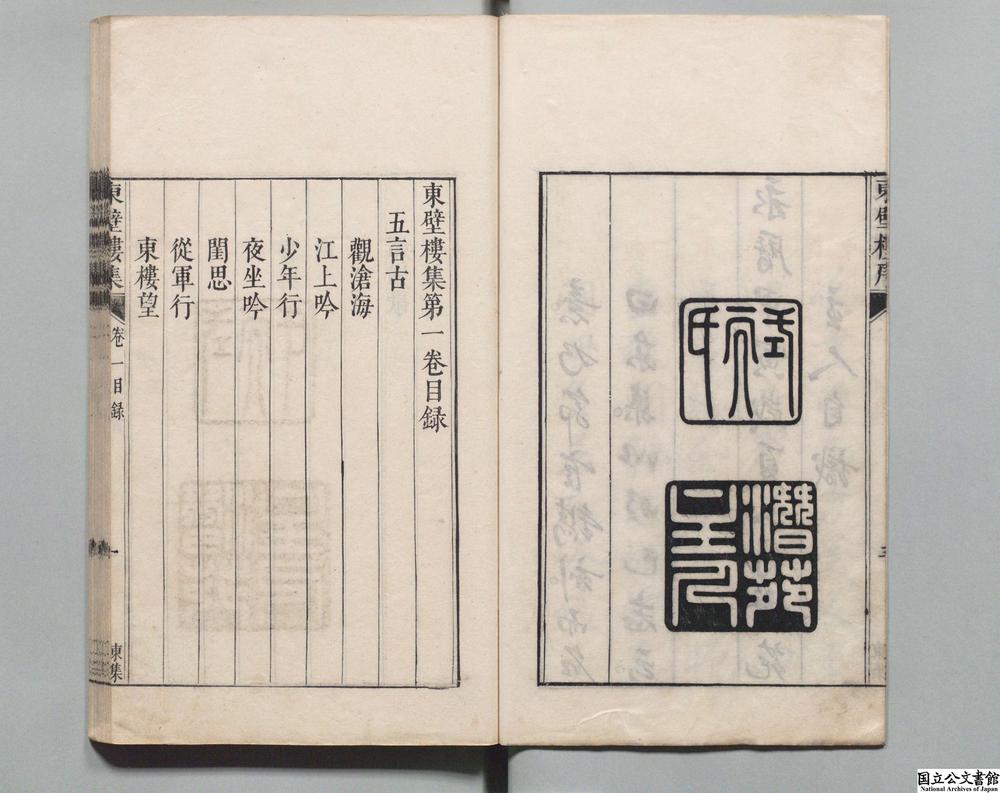 東壁樓序
式天氏
潛苑主人
東壁樓集第一卷目録
五言古
觀滄海
江上吟
少年行
夜坐吟
閨思
從軍行
東樓望
東壁樓集
卷一目録
一
東集
国立公文書館
National Archives of Japan